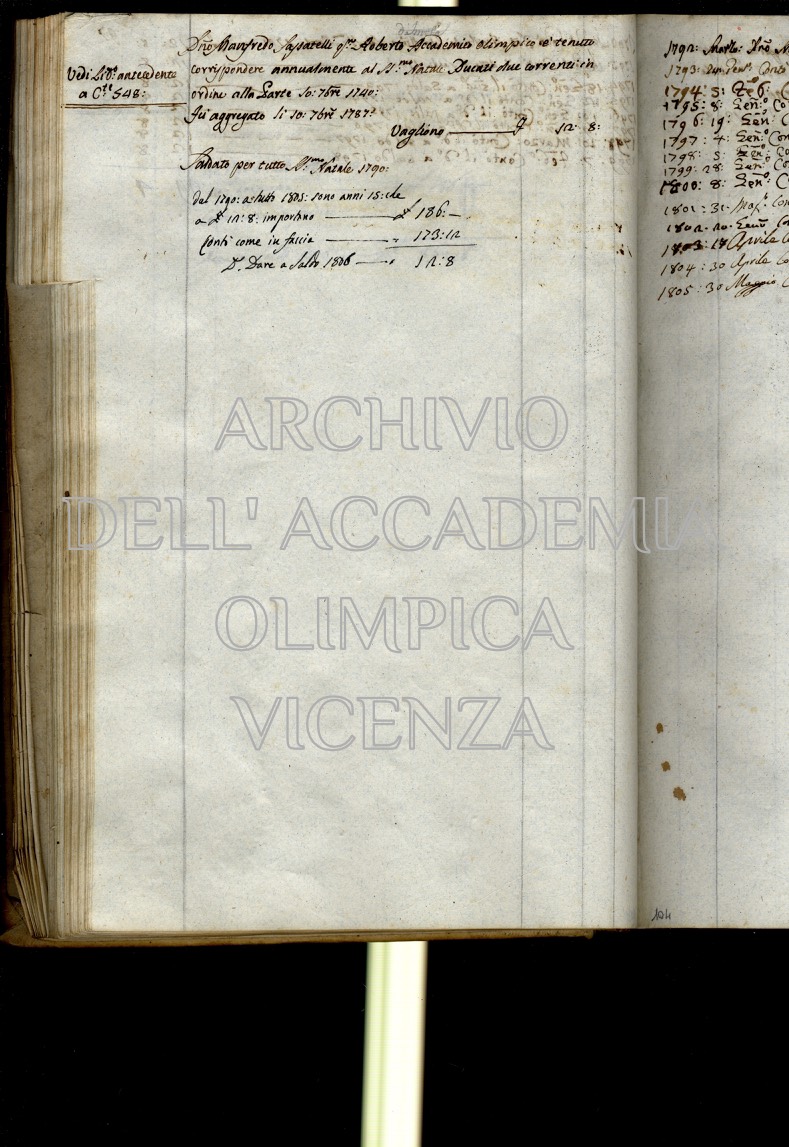 Vedi Lib.º antecedente
a C.te 548:
D'Imola
Dño Manfredo Sassatelli q.m Roberto Accademico Olimpico è tenuto
corrispondere annualmente al S.mo Natale Ducati due correnti in
ordine alla Parte 10: 7bre 1740:
Fu aggregato li 10: 7bre 1787:
Vagliono 12: 8:
Saldato per tutto S.mo Natale 1790:
dal 1790: a tutto 1805: sono anni 15: che
a 12: 8: importano 186: —
Conti come in faccia " 173: 12
Dare a Saldo 1806 " 12: 8
1792: Marzo:
1793:
1794: 3:
1795: 8: Gen:º Co
1796: 19: Gen:º C
1797: 4: Gen:º Con
1798: 3: Gen:º Co
1799: 28: Gen:º Con
1800: 8: Gen:º C
1801: 31: Mag.º Con
1802: 20: Gen.º Con
1803: 18 Aprile C
1804: 30 Aprile Co
1805: 30 Maggio C
ARCHIVIO
DELL' ACCADEMIA
OLIMPICA
VICENZA
104